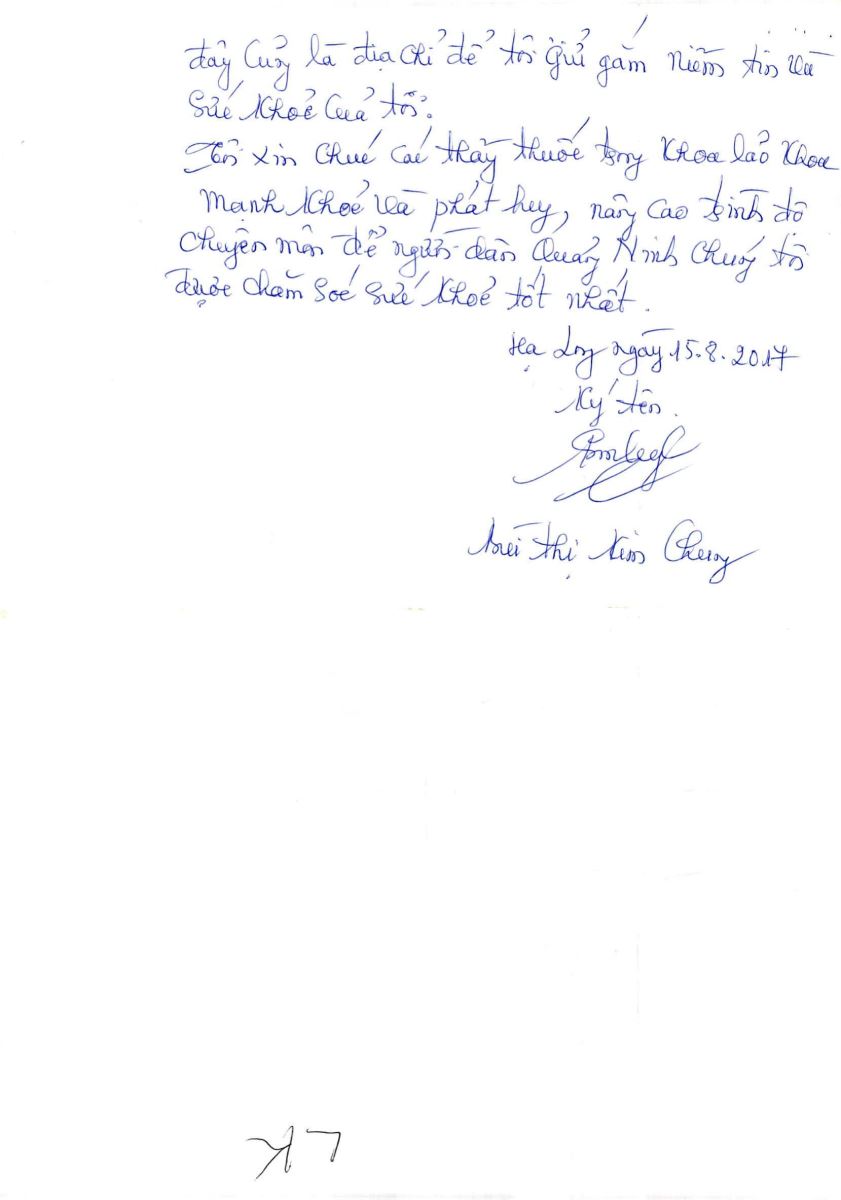 đây cũng là địa chỉ để tôi gửi gắm niềm tin và
sức khoẻ của tôi.
Tôi xin chúc các thầy thuốc trong khoa lão khoa
mạnh khoẻ và phát huy, nâng cao trình độ
chuyên môn để người dân Quảng Ninh chúng tôi
được chăm sóc sức khoẻ tốt nhất.
Hạ Long ngày 15.8.2017
Ký tên.
Bùi Thị Kim Chung
LK